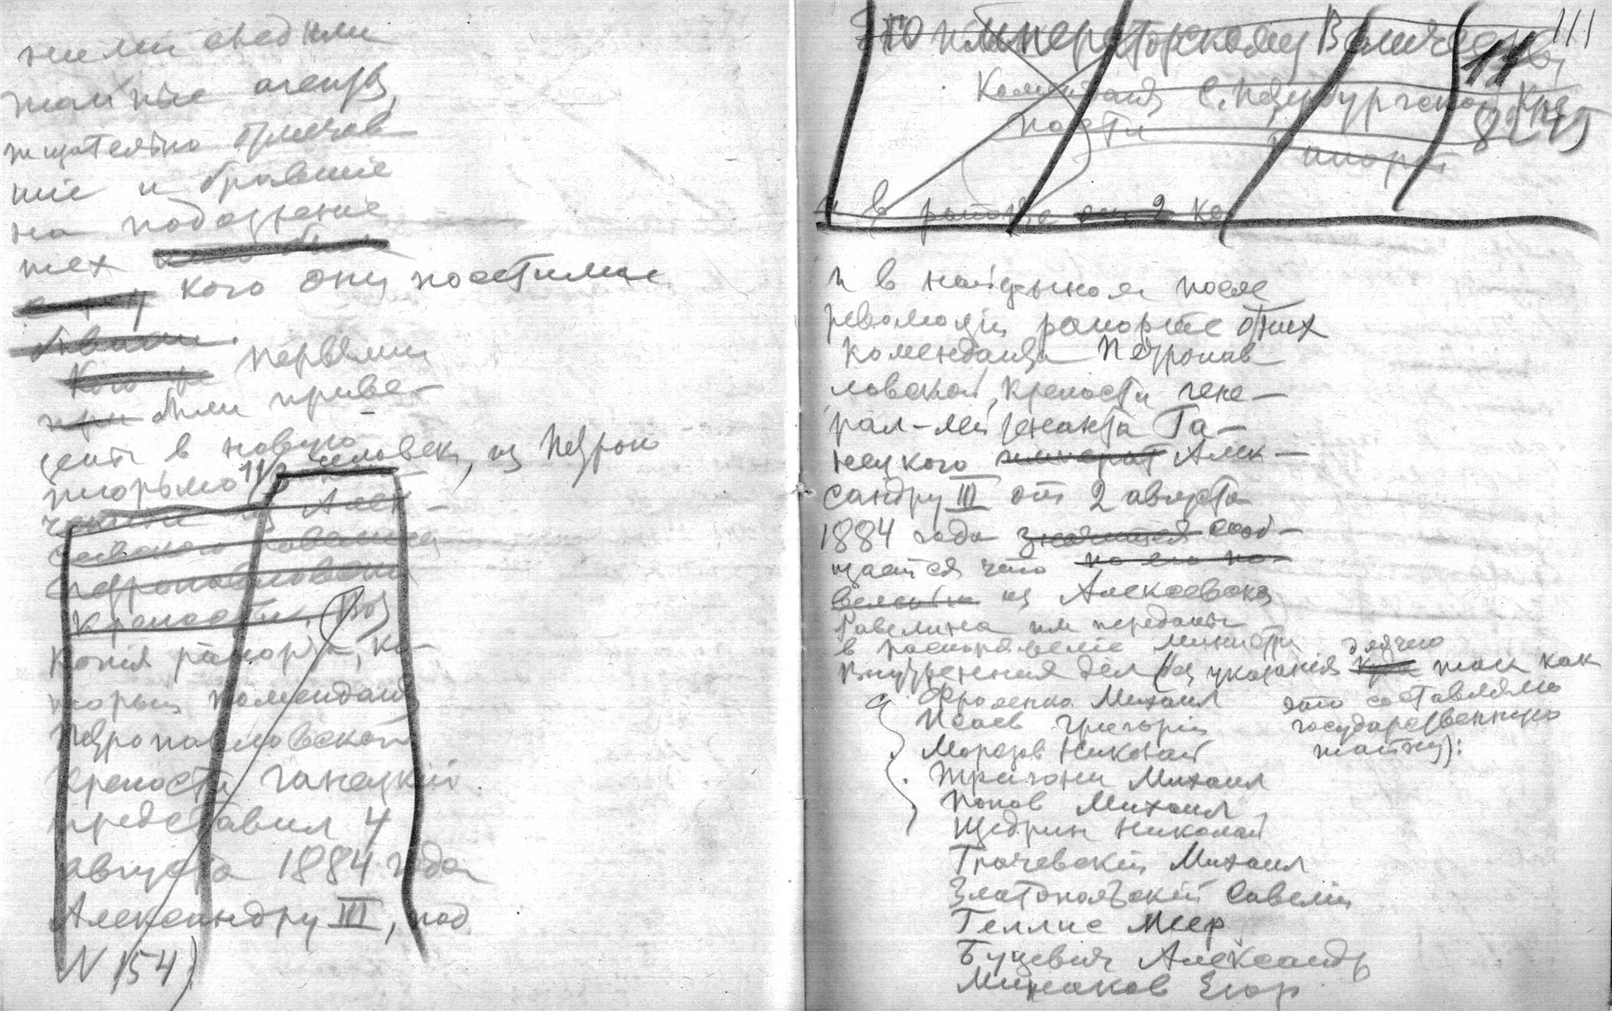 ними следили
тайные агенты,
тщательно отмечав
шие и бравшие
на подозрение
тех
кого они постигли
бывали.
Кого первыми
при были приве-
в новую
тюрьму 11/2 человек, из Петроп
из Алек-
сеевского равелина
Петропавловской
Крепости. (Из
копия рапорта, ко-
торый комендант
Петропавловской
крепости Ганецкий
представил 4
августа 1884 года
Александру III, под
N 154)
Его императорскому Величеству,
111
11
Коменданта С. Петербургской Кре
пости
8245
Рапорт
и в рапорте от 2 ко
и в найденном после
революции рапорте
коменданта Петропав
ловской, крепости гене-
рал-лейтенанта Га-
нецкого Алек-
сандру III от 2 августа
1884 года значится сооб-
щается что по его по-
велению из Алексеевского
Равелина им переданы
в распоряжение министра
внутренних дел (без указания куда так как
это составляло
государственную
тайну):
Фроленко Михаил
Исаев Григорий
Морозов Николай
Тригони Михаил
Попов Михаил
Щедрин Николай
Грачевский Михаил
Златопольский Савелий
Геллис Меер
Буцевич Александр
Минаков Егор